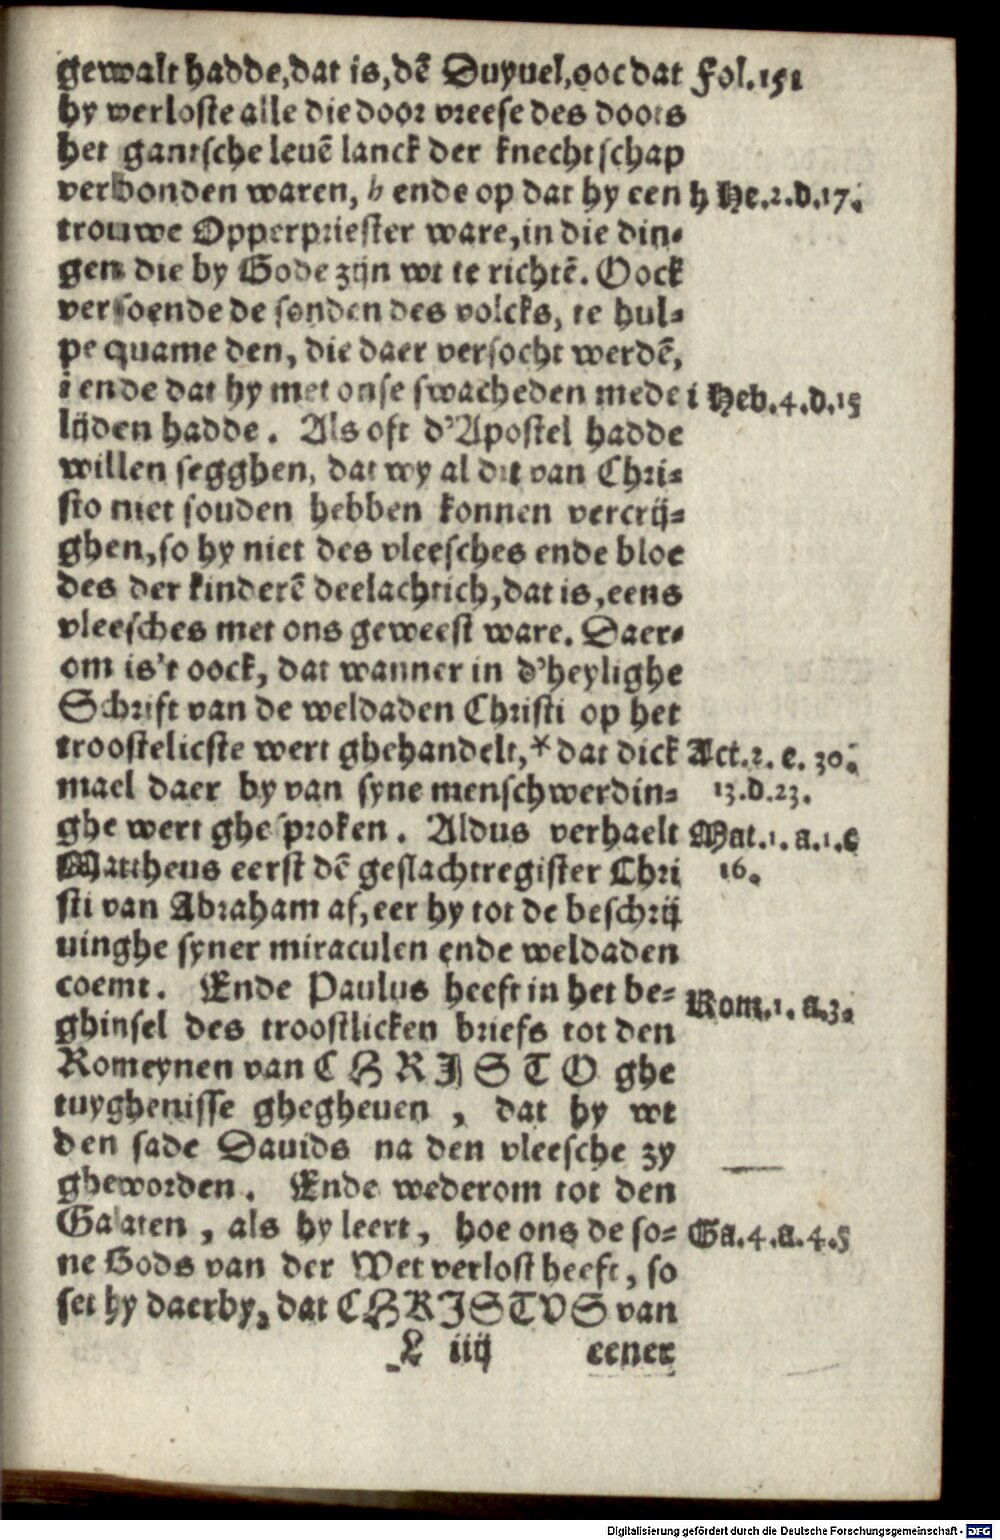 gewalt hadde, dat is, dē Duyuel, ooc dat Fol. 151
hy werloste alle die door vreese des doots
het gantsche leuē lanck der knechtschap
verbonden waren, h ende op dat hy een h He. 2. d. 17.
trouwe Opperpriester ware, in die din-
gen die by Gode zijn wt te richtē. Oock
versoende de sonden des volcks, te hul-
pe quame den, die daer versocht werdē,
i ende dat hy met onse swacheden mede i Heb. 4. d. 15
lijden hadde. Als oft d'Apostel hadde
willen segghen, dat wy al dit van Chri-
sto niet souden hebben konnen vercrij-
ghen, so hy niet des vleesches ende bloe
des der kinderē deelachtich, dat is, eens
vleesches met ons geweest ware. Daer-
om is't oock, dat wanner in d'heylighe
Schrift van de weldaden Christi op het
troostelicste wert ghehandelt, * dat dick Act. 2. e. 30.
mael daer by van syne menschwerdin- 13. d. 23.
ghe wert ghesproken. Aldus verhaelt Mat. 1. a. 1. c
Mattheus eerst dē geslachtregister Chri 16.
sti van Abraham af, eer hy tot de beschrij
uinghe syner miraculen ende weldaden
coemt. Ende Paulus heeft in het be- Rom. 1. a. 3.
ghinsel des troostlicken briefs tot den
Romeynen van CHRISTO ghe
tuyghenisse ghegheuen, dat hy wt
den sade Dauids na den vleesche zy
gheworden. Ende wederom tot den
Galaten, als hy leert, hoe ons de so- Ga. 4. a. 4. 5
ne Gods van der Wet verlost heeft, so
set hy daerby, dat CHRISTVS van
L iiij eener
Digitalisierung gefördert durch die Deutsche Forschungsgemeinschaft - DFG